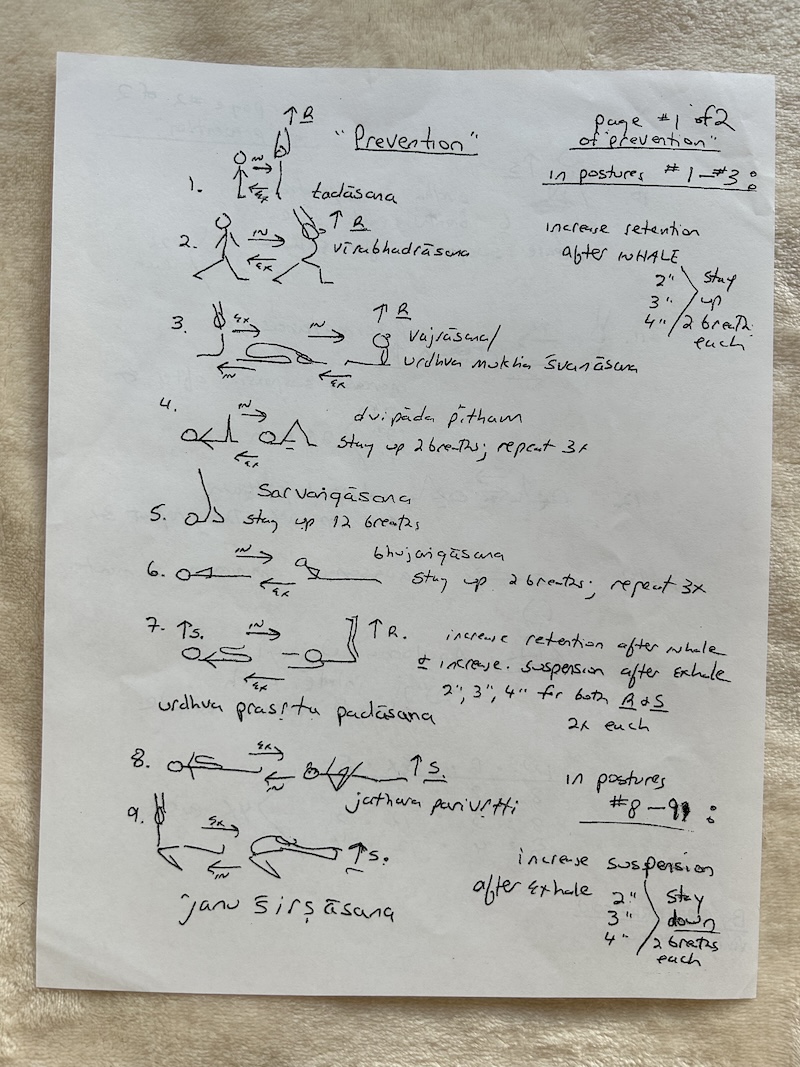 "Prevention"
page #1 of 2
of "prevention"
in postures #1—#3:
↑ R
1. IN EX tadāsana
increase retention
after INHALE
2" stay
3" up
4" 2 breaths
each
2. IN EX ↑ R
vīrabhadrāsana
3. EX IN ↑ R
IN EX
vajrāsana/
urdhva mukha śvanāsana
4. IN EX
dvipāda pītham
stay up 2 breaths; repeat 3x
5. Sarvangāsana
stay up 12 breaths
6. IN EX
bhujangāsana
stay up 2 breaths; repeat 3x
7. ↑ S. IN EX ↑ R.
increase retention after inhale
& increase suspension after exhale
2", 3", 4" for both R & S
2x each
urdhva prasṛta padāsana
8. EX IN ↑ S.
jathara parivṛtti
in postures
#8—9:
9. EX IN ↑ S.
janu śirṣāsana
increase suspension
after exhale
2" stay
3" down
4" 2 breaths
each